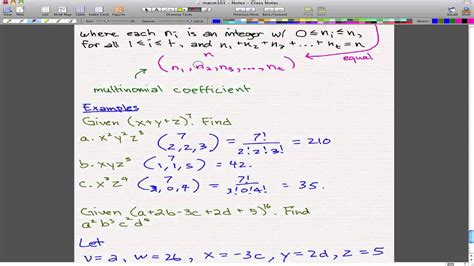 macm101 - Notes - Class Notes
where each nᵢ is an integer w/ 0≤nᵢ≤n,
for all 1≤i≤t, and n₁+n₂+n₃+...+nₜ=n
n
(n₁, n₂, n₃, ..., nₜ)
equal
multinomial coefficient
Examples
Given (x+y+z)⁷. Find
a. x²y²z³ (7 2,2,3) = 7!/2!2!3! = 210
b. xyz⁵ (7 1,1,5) = 42.
c. x³z⁴ (7 3,0,4) = 7!/3!0!4! = 35.
Given (a+2b-3c+2d+5)¹⁶. Find
a²b³c²d⁵
Let
v=a, w=2b, x=-3c, y=2d, z=5